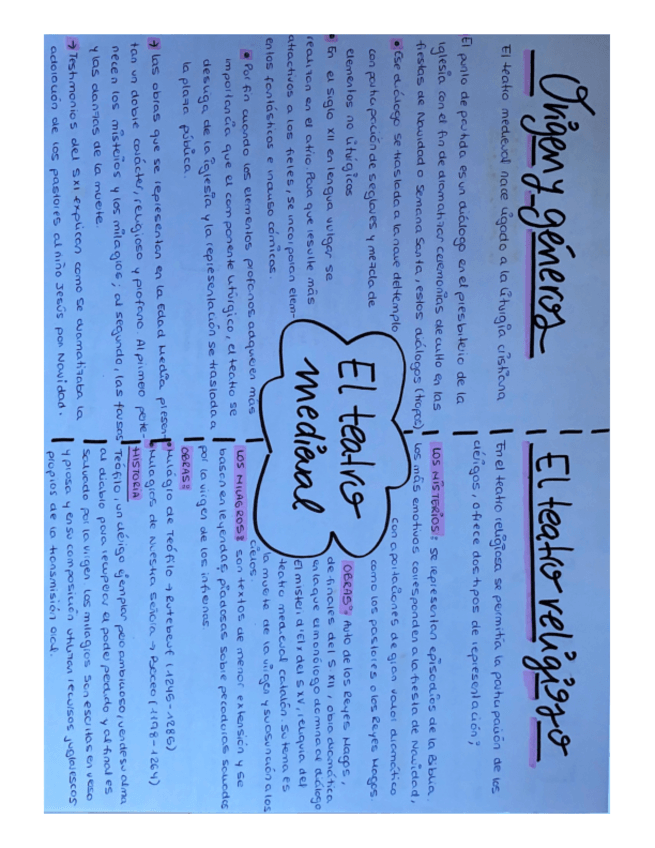 El teatro medieval
Origen y géneros
El teatro medieval nace ligado a la liturgia cristiana
El punto de partida es un diálogo en el presbiterio de la
iglesia con el fin de dramatizar ceremonias de culto en las
fiestas de Navidad o Semana Santa, estos diálogos (tropos)
• Ese diálogo se traslada a la nave del templo
con participación de seglares y mezcla de
elementos no litúrgicos
• En el siglo XII en lengua vulgar se
realizan en el atrio. Para que resulte más
atractivos a los fieles, se incorporan elem-
entos fantásticos e incluso cómicos.
• Por fin cuando los elementos profanos adquieren más
importancia que el componente litúrgico, el teatro se
desliga de la iglesia y la representación se traslada a
la plaza pública.
→ Las obras que se representan en la Edad Media presen-
tan un doble carácter, religioso y profano. Al primero perte-
necen los misterios y los milagros; al segundo, las farsas
y las danzas de la muerte.
→ Testimonios del S XI explican como se dramatizaba la
adoración de los pastores al niño Jesús por Navidad.
El teatro religioso
En el teatro religioso se permitía la participación de los
clérigos, ofrece dos tipos de representación;
LOS MISTERIOS: se representan episodios de la Biblia.
Los más emotivos corresponden a la fiesta de Navidad,
con aportaciones de gran valor dramático
como los pastores o los Reyes Magos.
OBRAS: Auto de los Reyes Magos,
de finales del S XII, obra dramática
en la que el monólogo domina al diálogo
El misteri d'Elx del S XV, reliquia del
teatro medieval catalán. su tema es
la muerte de la virgen y su asunción a los
cielos
LOS MILAGROS: son textos de menor extensión y se
basan en leyendas piadosas sobre pecadores salvados
por la virgen de los infiernos
OBRAS:
• Milagro de Teófilo → Rutebeuf (1245-1286)
• Milagros de Nuestra Señora → Berceo (1198-1264)
HISTORIA
Teófilo, un clérigo ejemplar pero ambicioso, vende su alma
al diablo para recuperar el poder perdido y al final es
salvado por la virgen. los milagros son escritos en verso
y prosa y en su composición utilizan recursos juglarescos
propios de la transmisión oral.